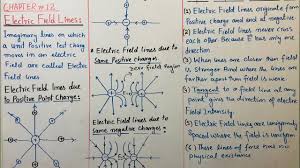 CHAPTER #12
Electric Field Lines:
Imaginary lines on which
a unit Positive test charge
moves in an electric
Field are called Electric
Field lines
Electric Field Lines due
to Positive Point Charge:
Electric Field lines due to
Same Positive charge:
zero field region
Electric Field lines due to
Same negative charge:
(1) Electric Field Lines originate from
Positive charge and end at negative
(2) Electric Field lines never cross
each other Because E has only one
direction
When lines are closer than field
is stronger, where the lines are
farther apart then field is weak
Tangent to a Field line at any
point gives the direction of electric
Field Intensity.
(5) Electric Field Lines are
spaced where the field is uniform
These lines of force have no
physical existence